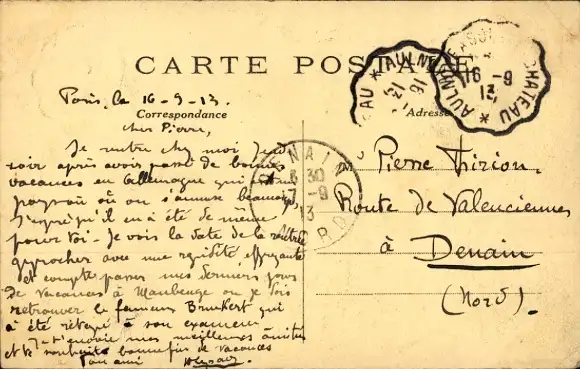 CARTE POSTALE
Correspondance
Adresse
Paris, le 16-9-13.
cher Pierre,
Je rentre chez moi Jeudi
soir après avoir passé de bonnes
vacances en Allemagne qui est un
pays où on s'amuse beaucoup,
J'espère qu'il en a été de même
pour toi. Je vois la date de la rentrée
approcher avec une rapidité effrayante
et compte passer mes derniers jours
de vacances à Maubeuge où je vois
retrouver le fameux Brunkert qui
a été à son examen
Je t'envoie mes meilleures amitiés
et te souhaite bonne fin de vacances
Ton ami
Pierre Thirion.
Route de Valenciennes
à Denain
(Nord).
AULNOYE CHATEAU
16-9
13
AULN
16-9
13
DENAIN
8 30
17-9
13
NORD